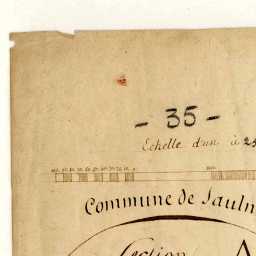 - 35 -
Echelle d'un à 25
Commune de Sauln
Section A